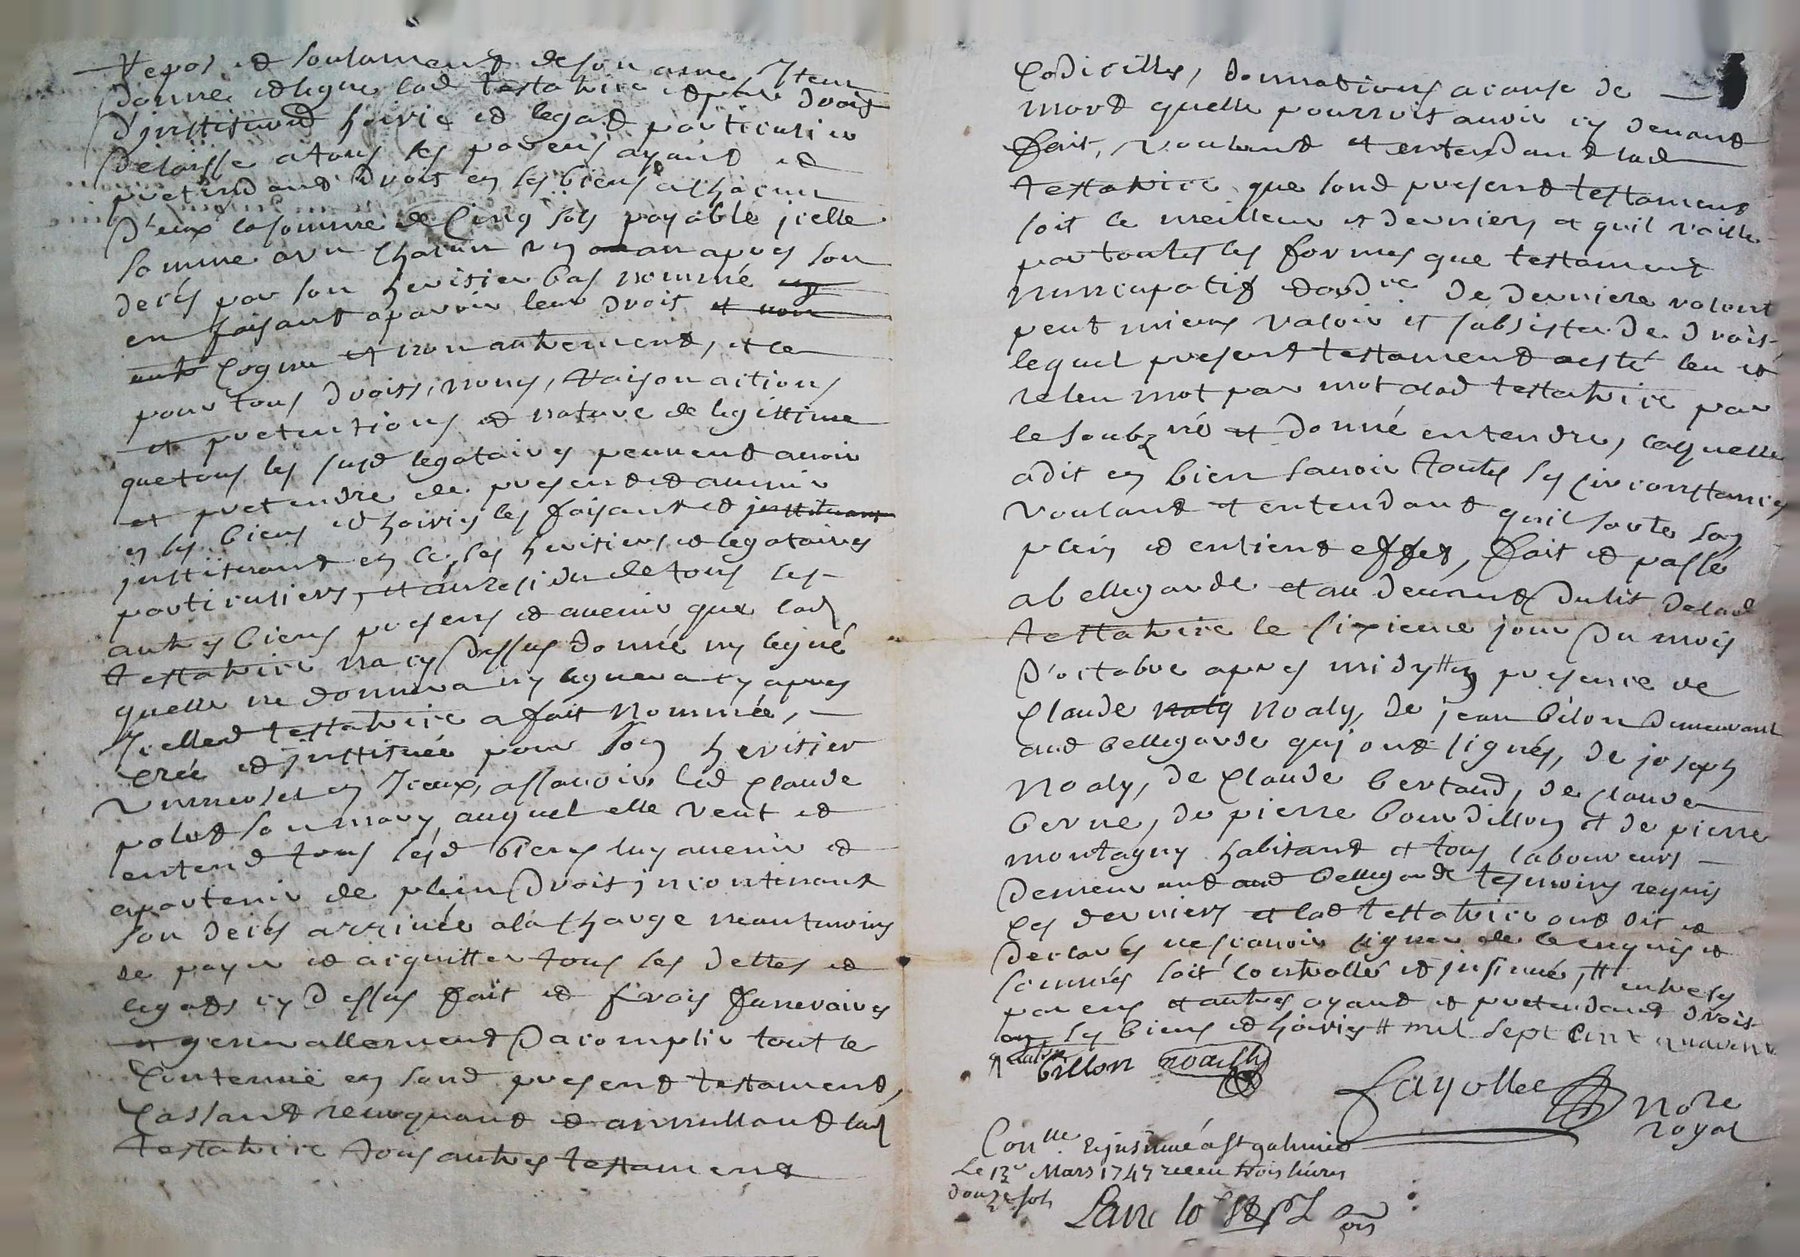 Repos et soulament de son ame, Item
donne et legue lad testatrice et par droit
d'institu'on hoirie et legat particulier
delaisse a tous ses parens ayant et
pretendant droit en ses biens a chacun
d'eux la somme de Cinq sols payable jcelle
somme a un chacun un an apres son
decés par son heritier bas nommé
en faisant aparoir leur droit et non
pour tous droits, noms, raison actions
et pretentions et nature de legittime
que tous les susd legataires peuvent avoir
et pretendre de present et avenir
en ses biens et hoiries les faisant et
jnstituant en ce ses heritiers et legataires
particuliers, et au residu de tous ses
autres biens presens et avenir que lad
testatrice na cy dessus donné ny legué
quelle ne donnera ny leguera cy apres
Jcelle testatrice a fait nommée,
créé et jnstituée pour son heritier
universel en Jceux, assavoir led Claude
polet son mary auquel elle veut et
entend tous sesd biens luy avenir et
apartenir de plein droit jncontinant
son decés arrivée a la charge neantmoins
de payer et aiquitter tous ses dettes et
legats cy dessus fait et frais funeraires
et generallement d'acomplir tout le
Contenue en sond present testament,
Cassant revoquant et annullant lad
testatrice tous autres testament
Codicilles, donnations a cause de
mort quelle pourroit avoir cy devant
fait, voulant et entendant lad
testatrice que sond present testament
soit le meilleur et derniers et quil vaille
par toutes les formes que testament
nuncupatif de derniere volont
peut mieux valoir et subsister de droit
lequel present testament a esté leu et
releu mot par mot alad testatrice par
le soubz né et donné entendre, laquelle
a dit en bien savoir toutes les circonstances
voulant et entendant quil sorte son
plein et entiere effet, fait et passé
a bellegarde et au devant du lit delad
testatrice le sixieme jour du mois
d'octobre apres midy en presence de
Claude noaly, de jean bilon demeurant
aud bellegarde qui ont signés, de joseph
noaly, de Claude bertand, de Claude
berne, de pierre bourdillon et de pierre
montagny habitant et tous laboureurs
demeurant aud bellegarde tesmoins requis
les derniers et lad testatrice ont dit et
declarés ne scavoir signer de ce enquis et
sommés soit controllé et jnsinué, entre ses
parens et autres ayant et pretendant droit
en ses biens et hoiries mil sept cent quarante
billon noailly
Fayolle nore
royal
Con.lle et jnsinué a St galmier
Le 12e Mars 1747 receu trois livres
douze sols